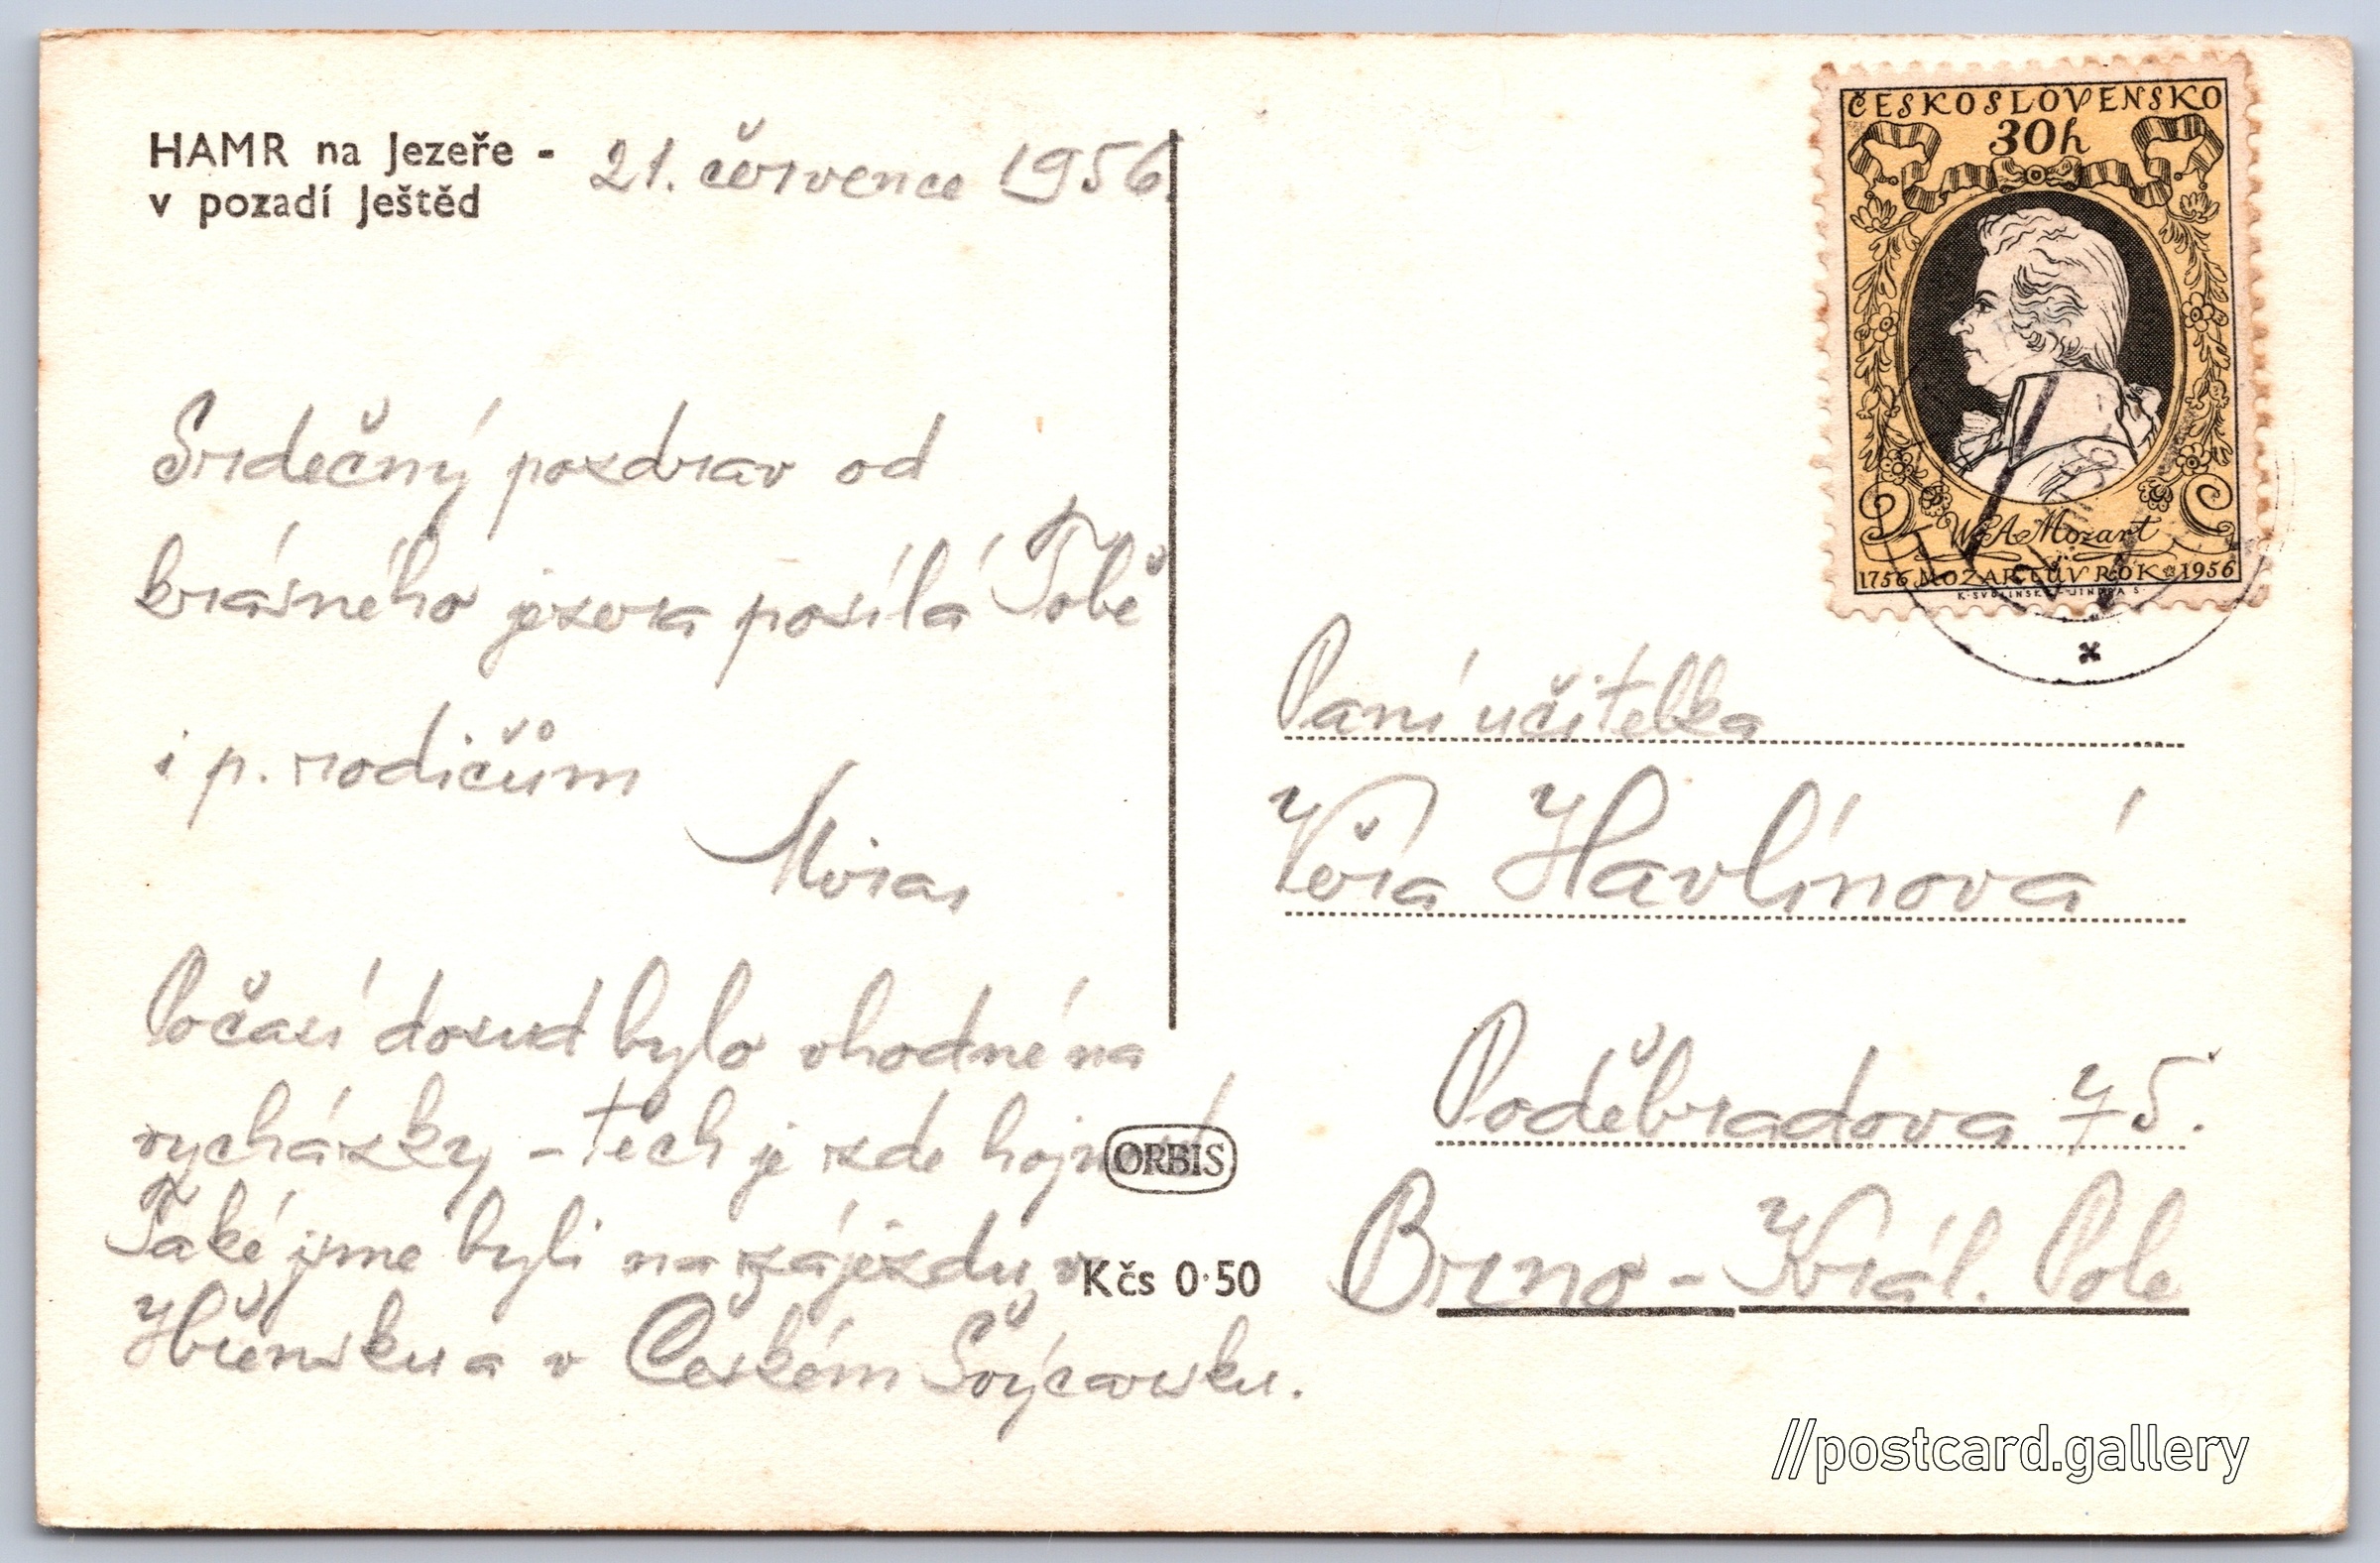 HAMR na Jezeře -
v pozadí Ještěd
21. července 1956
Srdečný pozdrav od
krásného jezera posílá Tobě
i p. rodičům
Počasí dosud bylo vhodné na
vycházky - těch je zde
Také jsme byli na zájezdu v
Hřensku a v Českém Švýcarsku.
ORBIS
Kčs 0·50
ČESKOSLOVENSKO
30h
W. A. Mozart
1756 MOZARTŮV ROK 1956
K. SVOLINSKÝ - JINDRA S.
Paní učitelka
Věra Havlínová
Poděbradova 75.
Brno - Král. Pole
//postcard.gallery